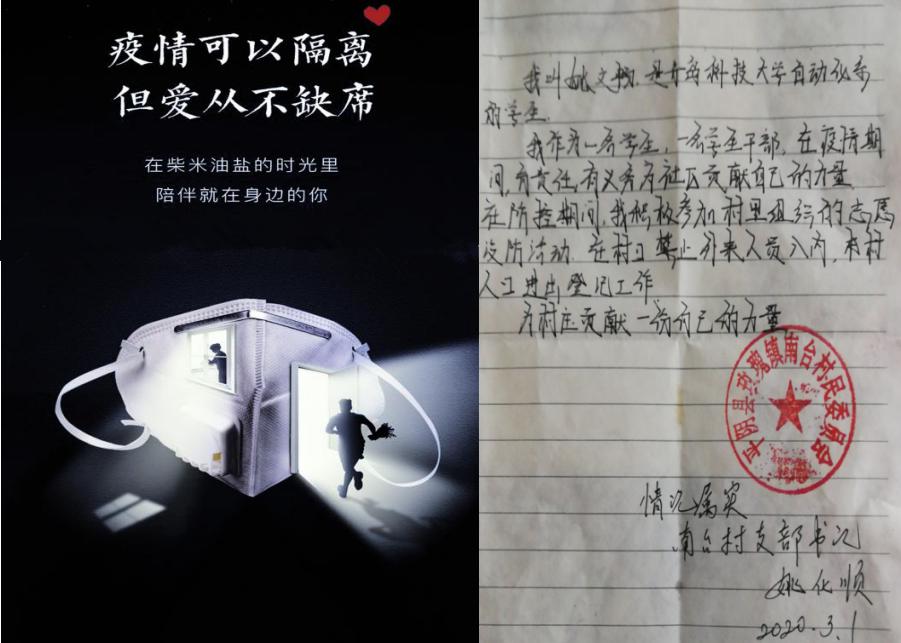 疫情可以隔离
但爱从不缺席
在柴米油盐的时光里
陪伴就在身边的你
我叫姚文翔 是齐鲁科技大学自动化系
的学生.
我作为一名学生,一名学生干部,在疫情期
间,有责任,有义务为社区贡献自己的力量
在防控期间,我积极参加村里组织的志愿
疫防活动.在村口禁止外来人员入内,本村
人口进出登记工作
为村庄贡献一份自己的力量
平阴县玫瑰镇南台村民委员会
情况属实
南台村支部书记
姚化顺
2020.3.1